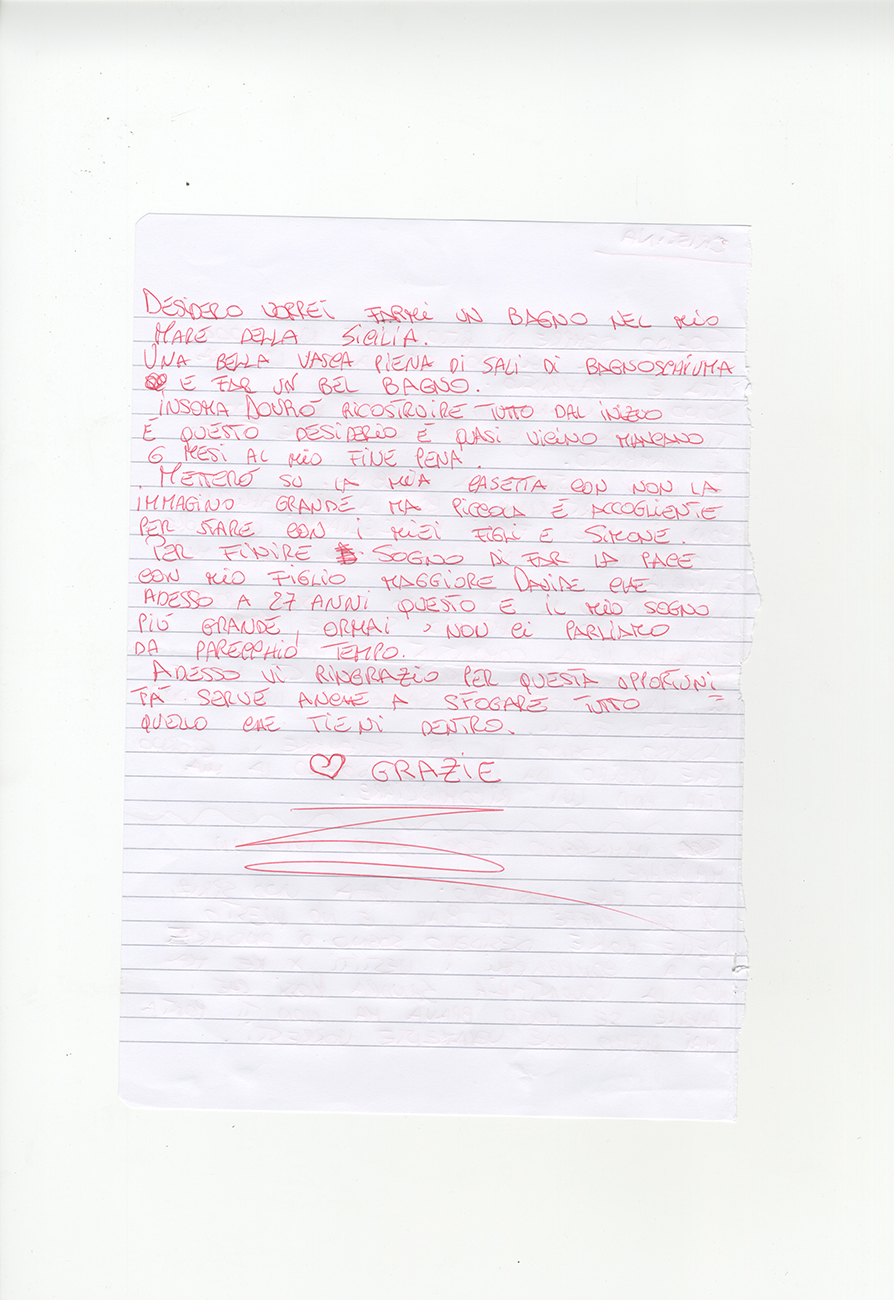 DESIDERO VORREI FARMI UN BAGNO NEL MIO
MARE DELLA SICILIA.
UNA BELLA VASCA PIENA DI SALI DI BAGNOSCHIUMA
E FAR UN BEL BAGNO.
INSOMA DOVRÓ RICOSTRUIRE TUTTO DAL INIZIO
É QUESTO DESIDERIO É QUASI VICINO MANCANO
6 MESI AL MIO FINE PENA.
METTERÓ SU LA MIA CASETTA CON NON LA
IMMAGINO GRANDE MA PICCOLA É ACCOGLIENTE
PER STARE CON I MIEI FIGLI E SIMONE.
PER FINIRE SOGNO DI FAR LA PACE
CON MIO FIGLIO MAGGIORE DAVIDE CHE
ADESSO A 27 ANNI QUESTO E IL MIO SOGNO
PIÚ GRANDE, ORMAI, NON CI PARLIAMO
DA PARECCHIO TEMPO.
ADESSO VI RINGRAZIO PER QUESTA OPPORTUNI=
TÁ SERVE ANCHE A SFOGARE TUTTO
QUELLO CHE TIENI DENTRO.
♡ GRAZIE